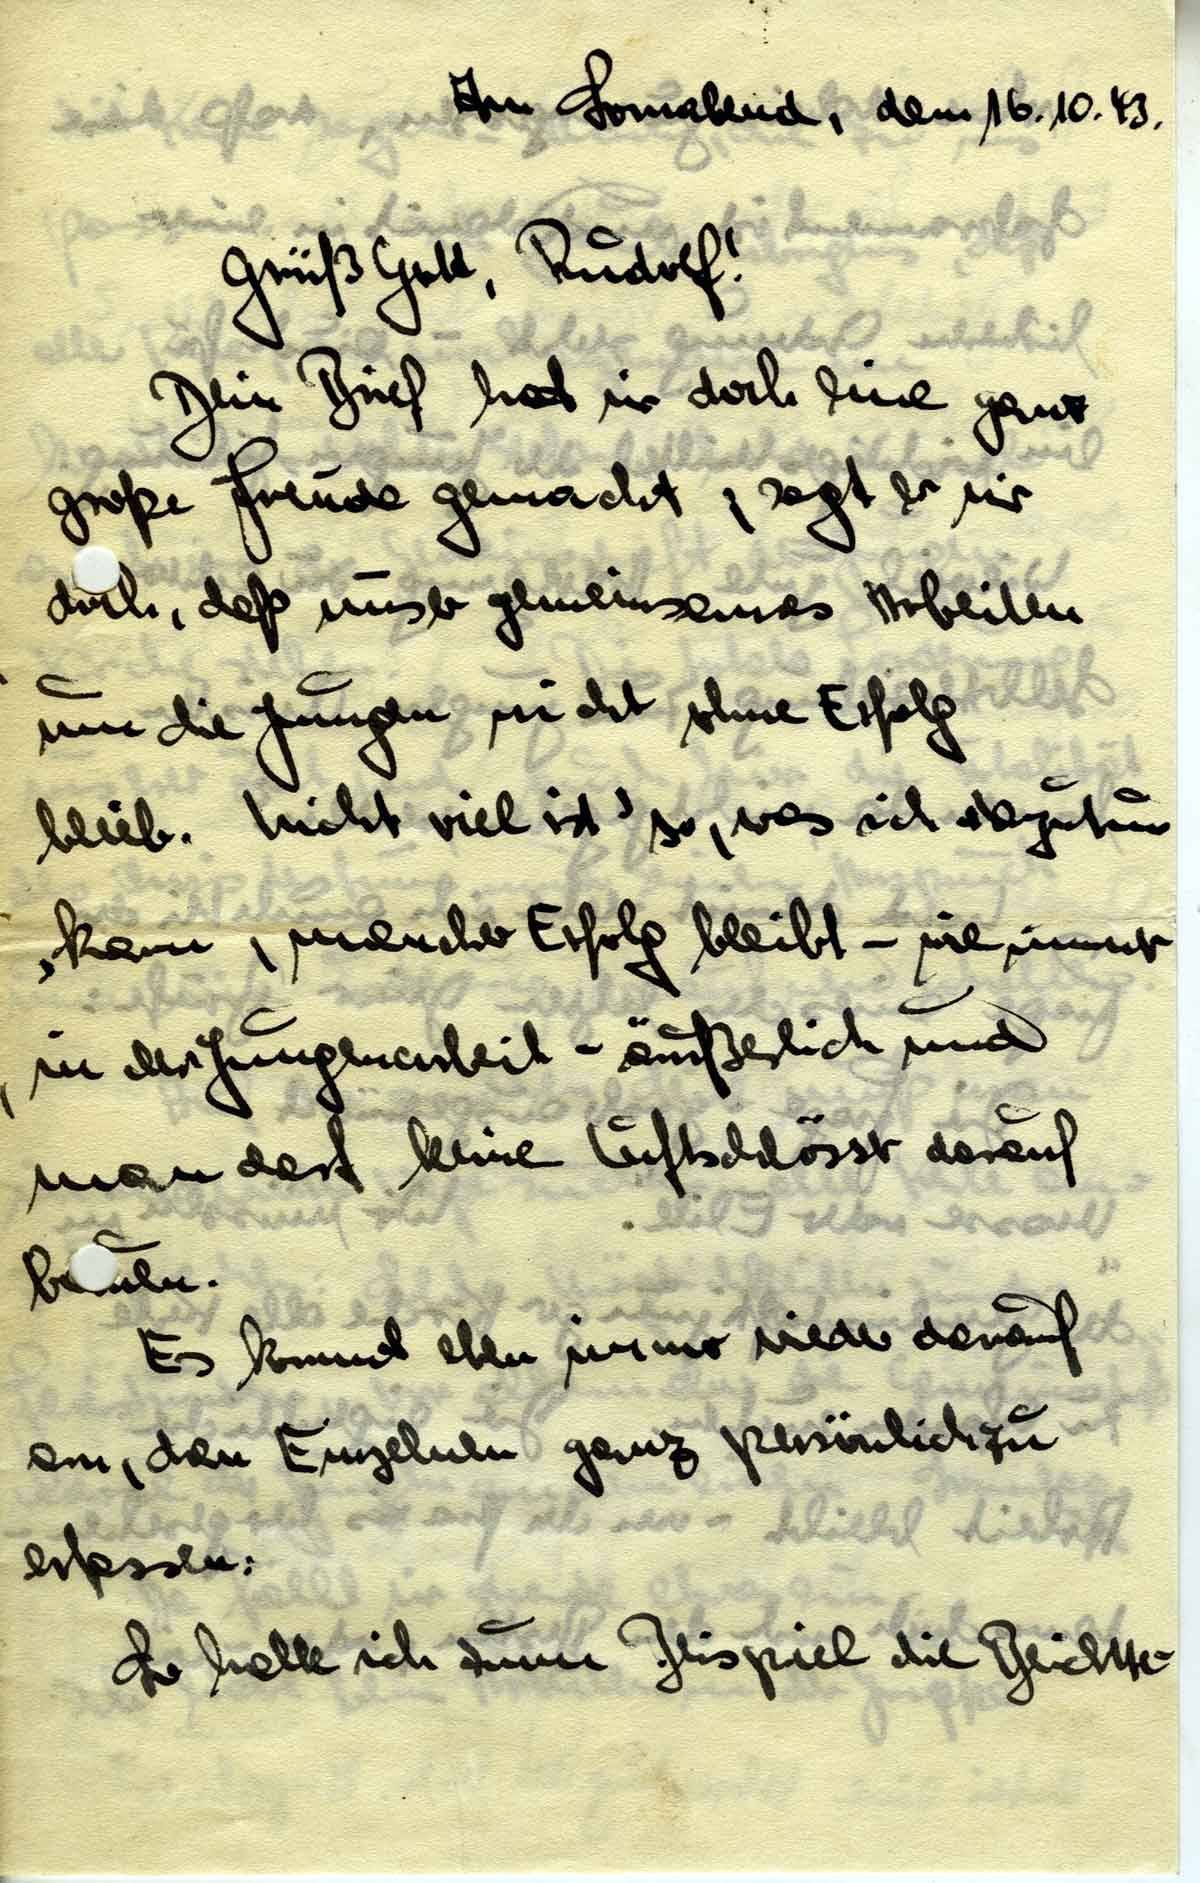 Am Sonnabend, dem 16.10.43.
Grüß Gott, Rudolf!
Dein Brief hat mir doch eine ganz
große Freude gemacht, sagt er mir
doch, daß unser gemeinsames Arbeiten
um die Jungen nicht ohne Erfolg
blieb. Nicht viel ist's so, was ich dazutun
kann, mancher Erfolg bleibt – wie immer
in der Jungenarbeit – äußerlich und
man darf keine Luftschlösser darauf
bauen.
Es kommt eben immer wieder darauf
an, den Einzelnen ganz persönlich zu
erfassen:
So halte ich zum Beispiel die Beichte-